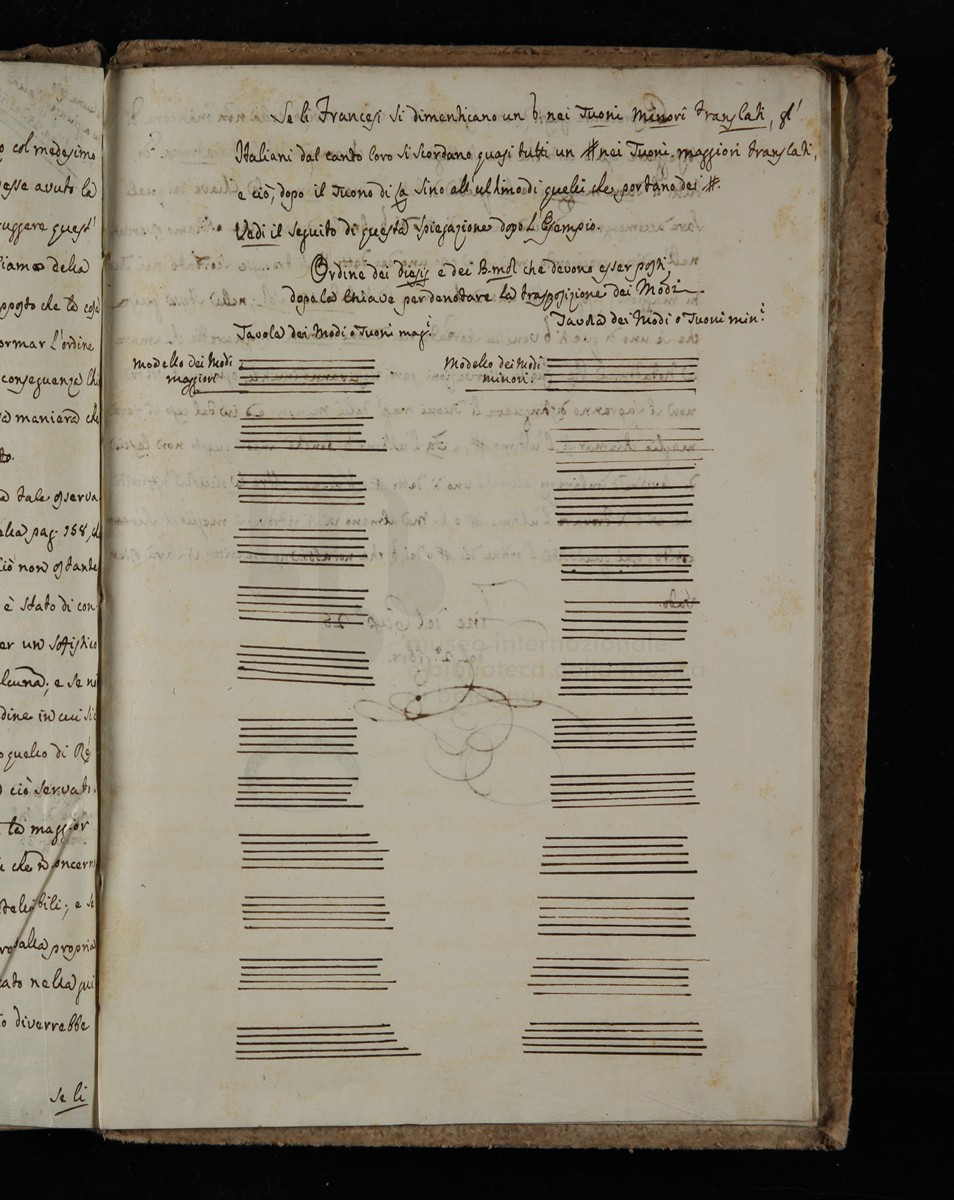 o col medesimo
esse avuto la
ruggere quest'
iamo della
pposto che la cosa
ormar l'ordine
conseguenza
a maniera che
to.
a tale osserva
alla pag. 158,
iò non ostante
è stato di con
er un sofistico
lcuna; e se n
dine in cui si
o quello di Re
ciò servato.
la maggior
che concern
; e se
alla propria
ato nella qui
o diverrebbe
se li
Se li Francesi si dimenticano un b. nei Tuoni Minori translati, gl'
Italiani dal canto loro si scordano quasi tutti un # nei Tuoni maggiori translati,
e ciò, dopo il Tuono di la sino all'ultimo di quelli che portano dei #.
Vedi il seguito di questa spiegazione dopo l'Esempio.
Ordine dei Diesis e dei B.mol che devono esser posti,
dopo la Chiave per denotare la trasposizione dei Modi
Tavola dei Modi o Tuoni mag.i
Tavola dei Modi o Tuoni min.i
Modello dei Modi
maggiori
Modello dei Modi
minori.
museo internazionale
e biblioteca della musica